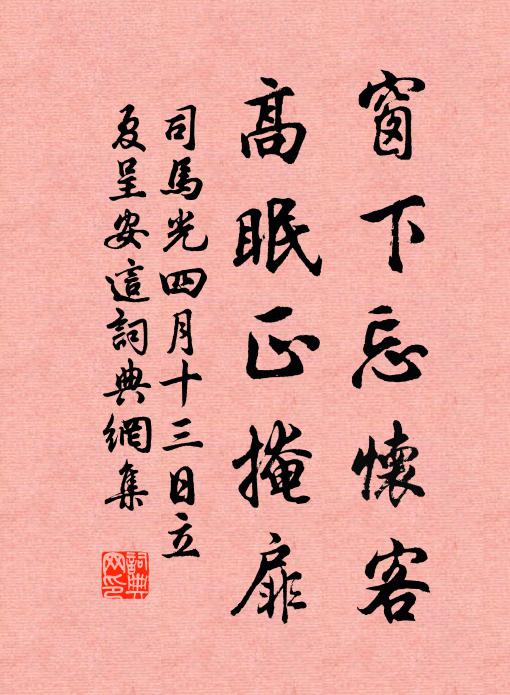 窗下忘懷客
高眠正掩扉
司馬光四月十三日立
夏呈安這詞典網集
詞典
网印